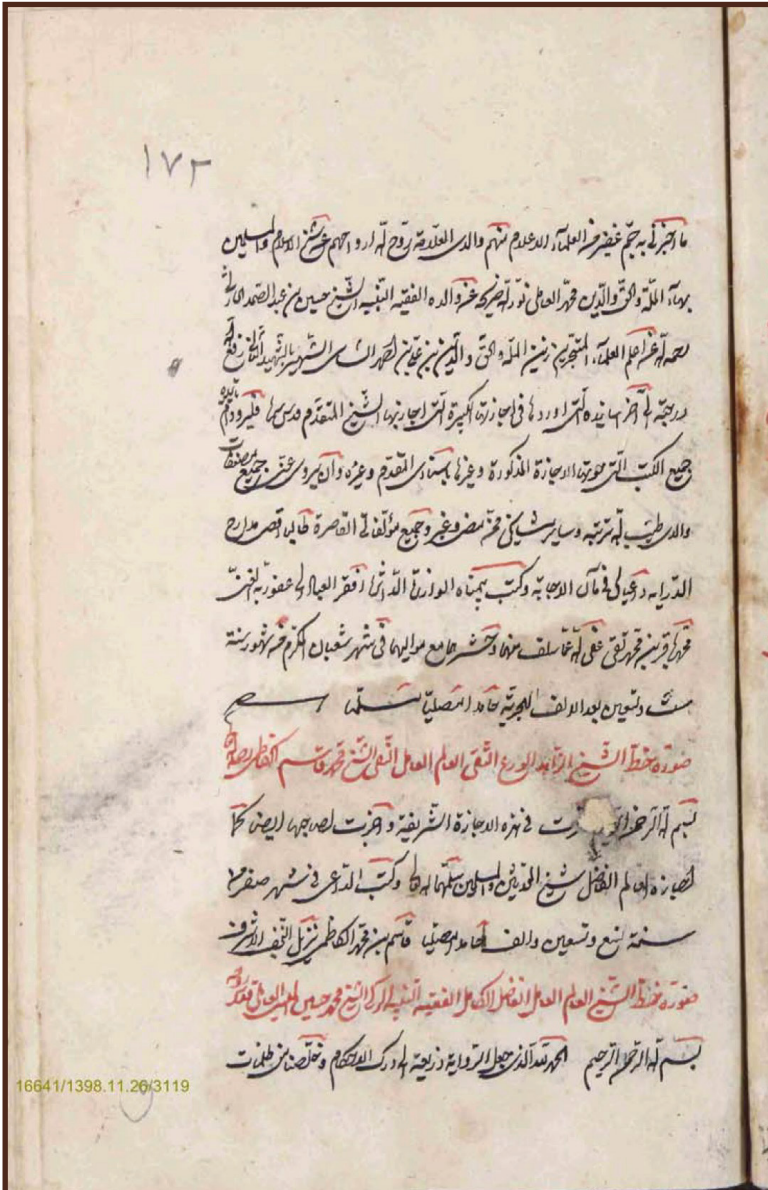 ١٧٢
ما اخبرني به جم غفير من العلماء الاعلام منهم والدي العلامة روح الله ارواحهم عن شيخ الاسلام والمسلمين
بهاء الملة والحق والدين محمد العاملي نور الله ضريحه عن والده الفقيه النبيه الشيخ حسين بن عبد الصمد الحارثي
رحمه الله عن اعلم العلماء المتبحرين زين الملة والحق والدين بن علي بن احمد الشامي الشهير بالشهيد الثاني رفع الله
درجته الى آخر اسانيده التي اوردها في اجازته الكبيرة التي اجاز بها الشيخ المتقدم قدس سرهما فليرو دام تاييده
جميع الكتب التي حوتها الاجازة المذكورة وغيرها باسنادي المتقدم وغيره وان يروي عني جميع مصنفات
والدي طيب الله تربته وساير مشايخي وجميع مؤلفاتي القاصرة طالبا اقصى مدارج
الدراية داعيا لي في مآن الاجابة وكتب بيمناه الوازرة الداثرة افقر العباد الى عفو ربه الغني
محمد باقر بن محمد تقي عفى الله عما سلف منهما وحشرهما مع مواليهما في شهر شعبان المكرم من شهور سنة
ست وتسعين بعد الالف الهجرية حامدا مصليا مسلما
صورة خط الشيخ الزاهد الورع التقي العالم العامل النقي الشيخ محمد قاسم الكاظمي رحمه الله
بسم الله الرحمن في هذه الاجازة الشريفة واجزت لصاحبها ايضا كما
اجازه العالم الفاضل شيخ المحدثين والمسلمين سلمهما الله تعالى وكتب الداعي في شهر صفر
سنة تسع وتسعين والف حامدا مصليا قاسم بن محمد الكاظمي نزيل النجف الاشرف
صورة خط الشيخ العالم العامل الفاضل الكامل الفقيه النبيه الزكي الشيخ محمد حسين العاملي
بسم الله الرحمن الرحيم الحمد لله الذي جعل الرواية ذريعة الى درك الاحكام وخلصنا من ظلمات
16641/1398.11.26/3119